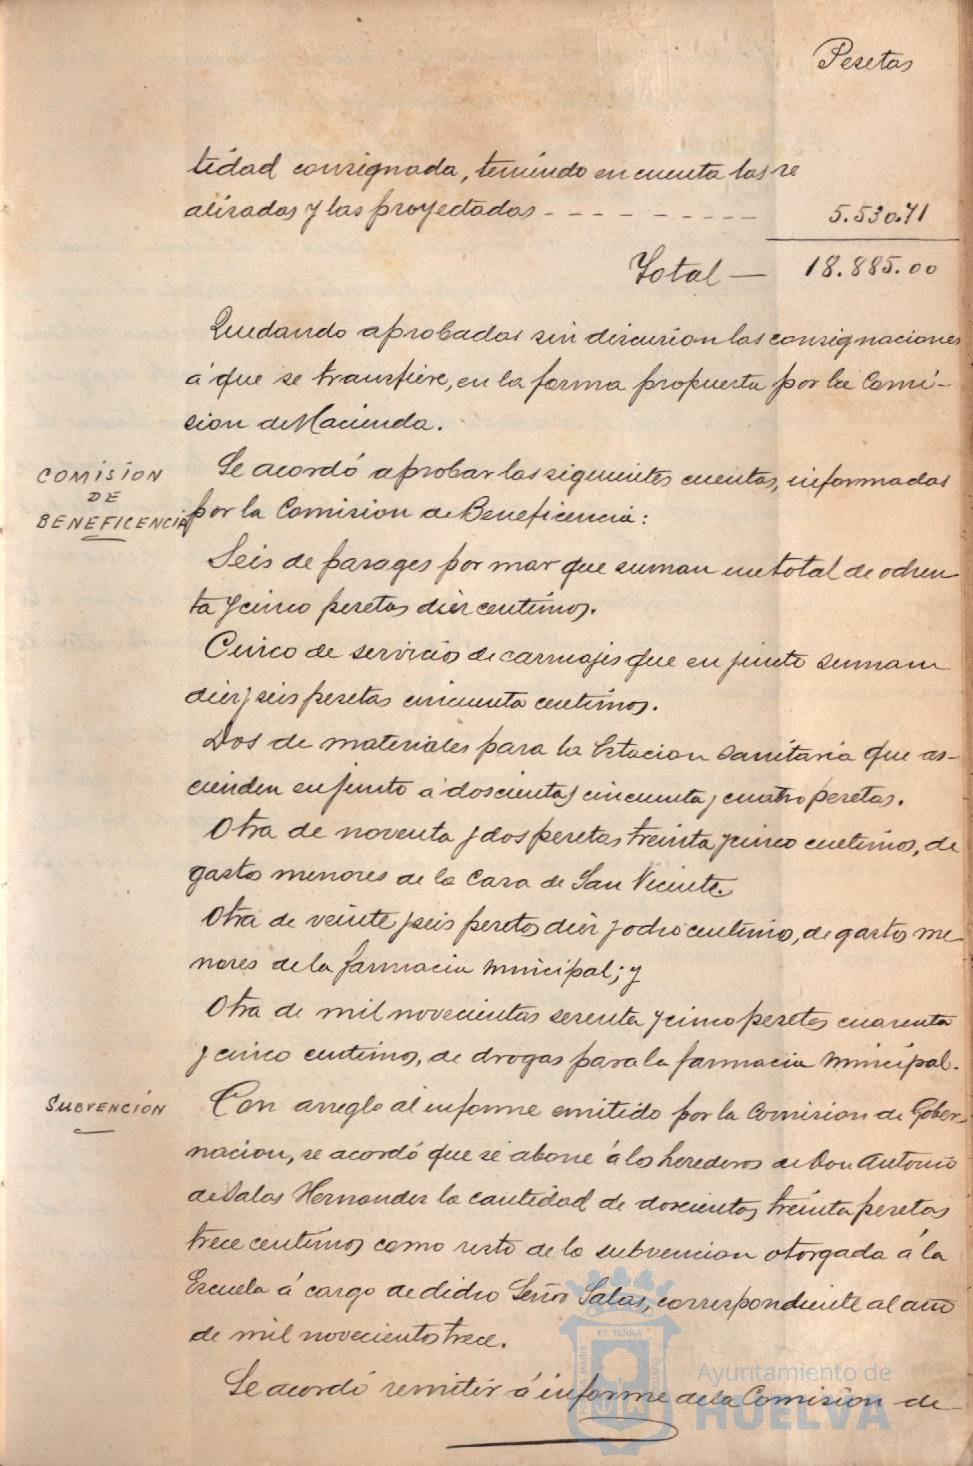 Pesetas
tidad consignada, teniendo en cuenta las re
alizadas y las proyectadas - - - - - - - - - 5.530.71
Total — 18.885.00
Quedando aprobadas sin discusion las consignaciones
á que se transfiere, en la forma propuesta por la Comi-
sion de Hacienda.
COMISION
DE
BENEFICENCIA
Se acordó aprobar las siguientes cuentas, informadas
por la Comision de Beneficencia:
Seis de pasages por mar que suman un total de ochen
ta y cinco pesetas diez centimos.
Cinco de servicios de carruajes que en junto suman
diez y seis pesetas cincuenta centimos.
Dos de materiales para la Estacion Sanitaria que as-
cienden en junto á doscientas cincuenta y cuatro pesetas.
Otra de noventa y dos pesetas treinta y cinco centimos, de
gastos menores de la Casa de San Vicente.
Otra de veinte y seis pesetas diez y ocho centimos, de gastos me-
nores de la farmacia municipal; y
Otra de mil novecientas sesenta y cinco pesetas cuarenta
y cinco centimos, de drogas para la farmacia municipal.
SUBVENCIÓN
Con arreglo al informe emitido por la Comision de Gober-
nacion, se acordó que se abone á los herederos de Don Antonio
de Salas Hernandez la cantidad de doscientas treinta pesetas
trece centimos como resto de la subvencion otorgada á la
Escuela á cargo de dicho Señor Salas, correspondiente al año
de mil novecientos trece.
Se acordó remitir á informe de la Comision de
Ayuntamiento de
HUELVA